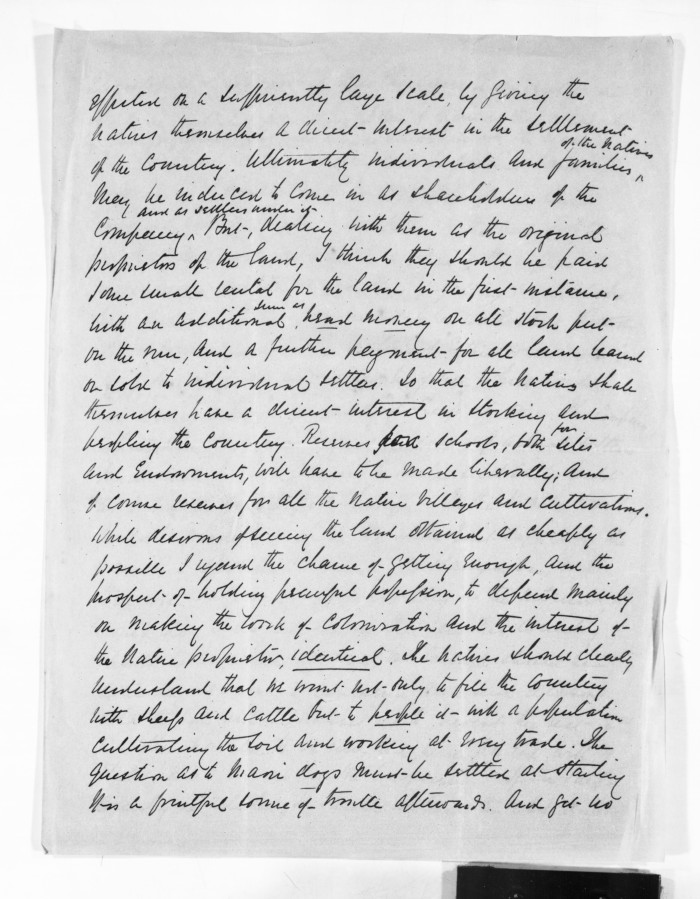 effected on a sufficiently large scale, by giving the
natives themselves a direct interest in the settlement
of the Country. Ultimately individuals and families of the natives
may be induced to come in as shareholders of the
Company, and as settlers under it. But, dealing with them as the original
proprietors of the land, I think they should be paid
some small rental for the land in the first instance,
with an additional sum as head money on all stock put
on the run, and a further payment for all land leased
or sold to individual settlers. So that the natives shall
themselves have a direct interest in stocking and
peopling the country. Reserves for schools, both for sites
and Endowments, will have to be made liberally; and
of course reserves for all the native villages and cultivations.
While desirous of seeing the land obtained as cheaply as
possible I regard the chance of getting enough, and the
prospect of holding peaceful possession, to depend mainly
on making the work of Colonization and the interest of
the Native proprietor, identical. The natives should clearly
understand that we want not only to fill the country
with sheep and cattle but to people it with a population
cultivating the soil and working at every trade. The
question as to Maori dogs must be settled at starting
It is a fruitful source of trouble afterwards. And get no